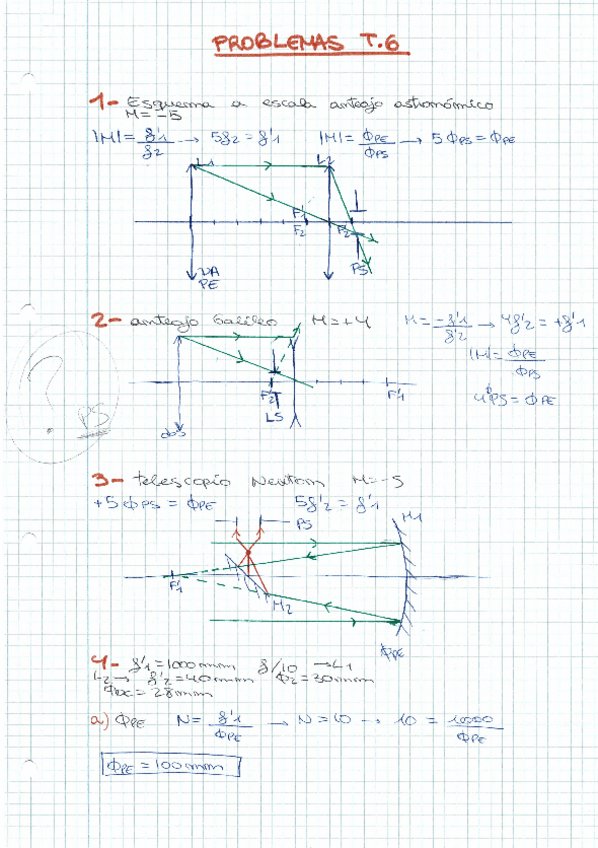 PROBLEMAS T.6
1- Esquema a escala anteojo astronómico
M=-5
|M|= f'1/f2 → 5f2=f'1 |M|= ΦPE/ΦPS → 5ΦPS=ΦPE
L1 L2
F'1
F2 F'2
DA
PE
PS
2- anteojo Galileo M=+4 M= -f'1/f'2 → 4f'2=+f'1
|M|= ΦPE/ΦPS
4ΦPS=ΦPE
F'2 F'1
LS
? PS
3- telescopio Newton M=-5
+5ΦPS=ΦPE 5f'2=f'1
PS M1
F'1
M2
ΦPE
4- f'1=1000mm f/10 →L1
L2→ f'2=40mm Φ2=30mm
=28mm
a) ΦPE N= f'1/ΦPE → N=10 → 10= 1000/ΦPE
ΦPE=100mm